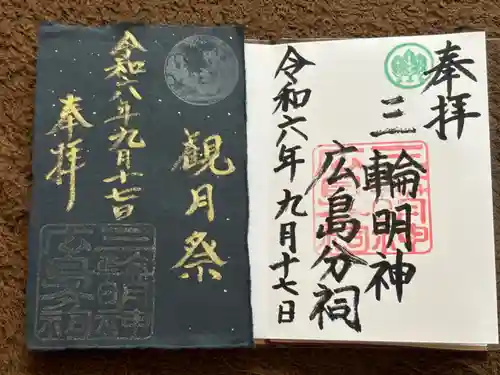 奉拝
三輪明神
広島分祠
令和六年九月十七日
三輪明神
広島分祠
観月祭
令和六年九月十七日
奉拝
三輪明神
広島分祠